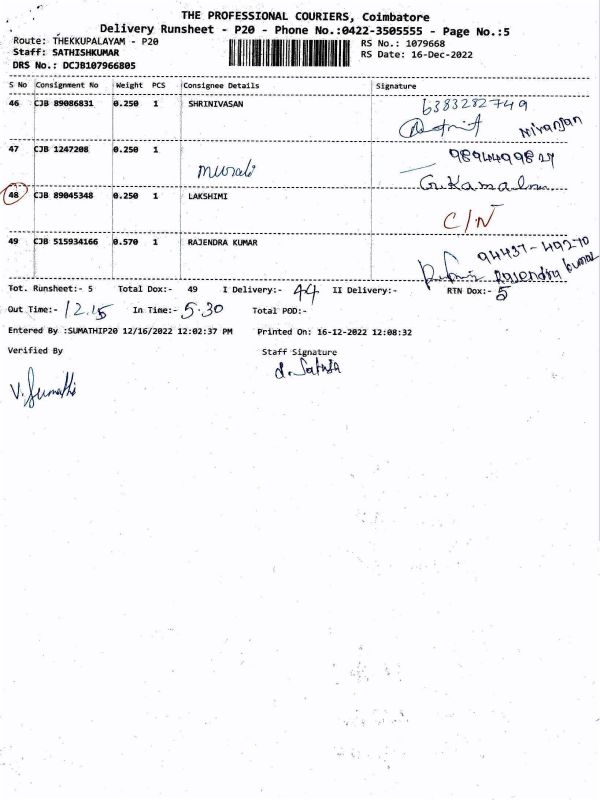 THE PROFESSIONAL COURIERS, Coimbatore
Delivery Runsheet - P20 - Phone No.:0422-3505555 - Page No.:5
Route: THEKKUPALAYAM - P20
RS No.: 1079668
Staff: SATHISHKUMAR
RS Date: 16-Dec-2022
DRS No.: DCJB107966805
S No Consignment No Weight PCS Consignee Details Signature
46 CJB 89086831 0.250 1 SHRINIVASAN 6383282749
Niranjan
47 CJB 1247208 0.250 1 9894499827
Murali
G.Kamalam
48 CJB 89045348 0.250 1 LAKSHIMI
C/N
49 CJB 515934166 0.570 1 RAJENDRA KUMAR 94437-49270
Rajendra kumar
Tot. Runsheet:- 5 Total Dox:- 49 I Delivery:- 44 II Delivery:- RTN Dox:- 5
Out Time:- 12.15 In Time:- 5.30 Total POD:-
Entered By :SUMATHIP20 12/16/2022 12:02:37 PM Printed On: 16-12-2022 12:08:32
Verified By Staff Signature
V. Sumathi